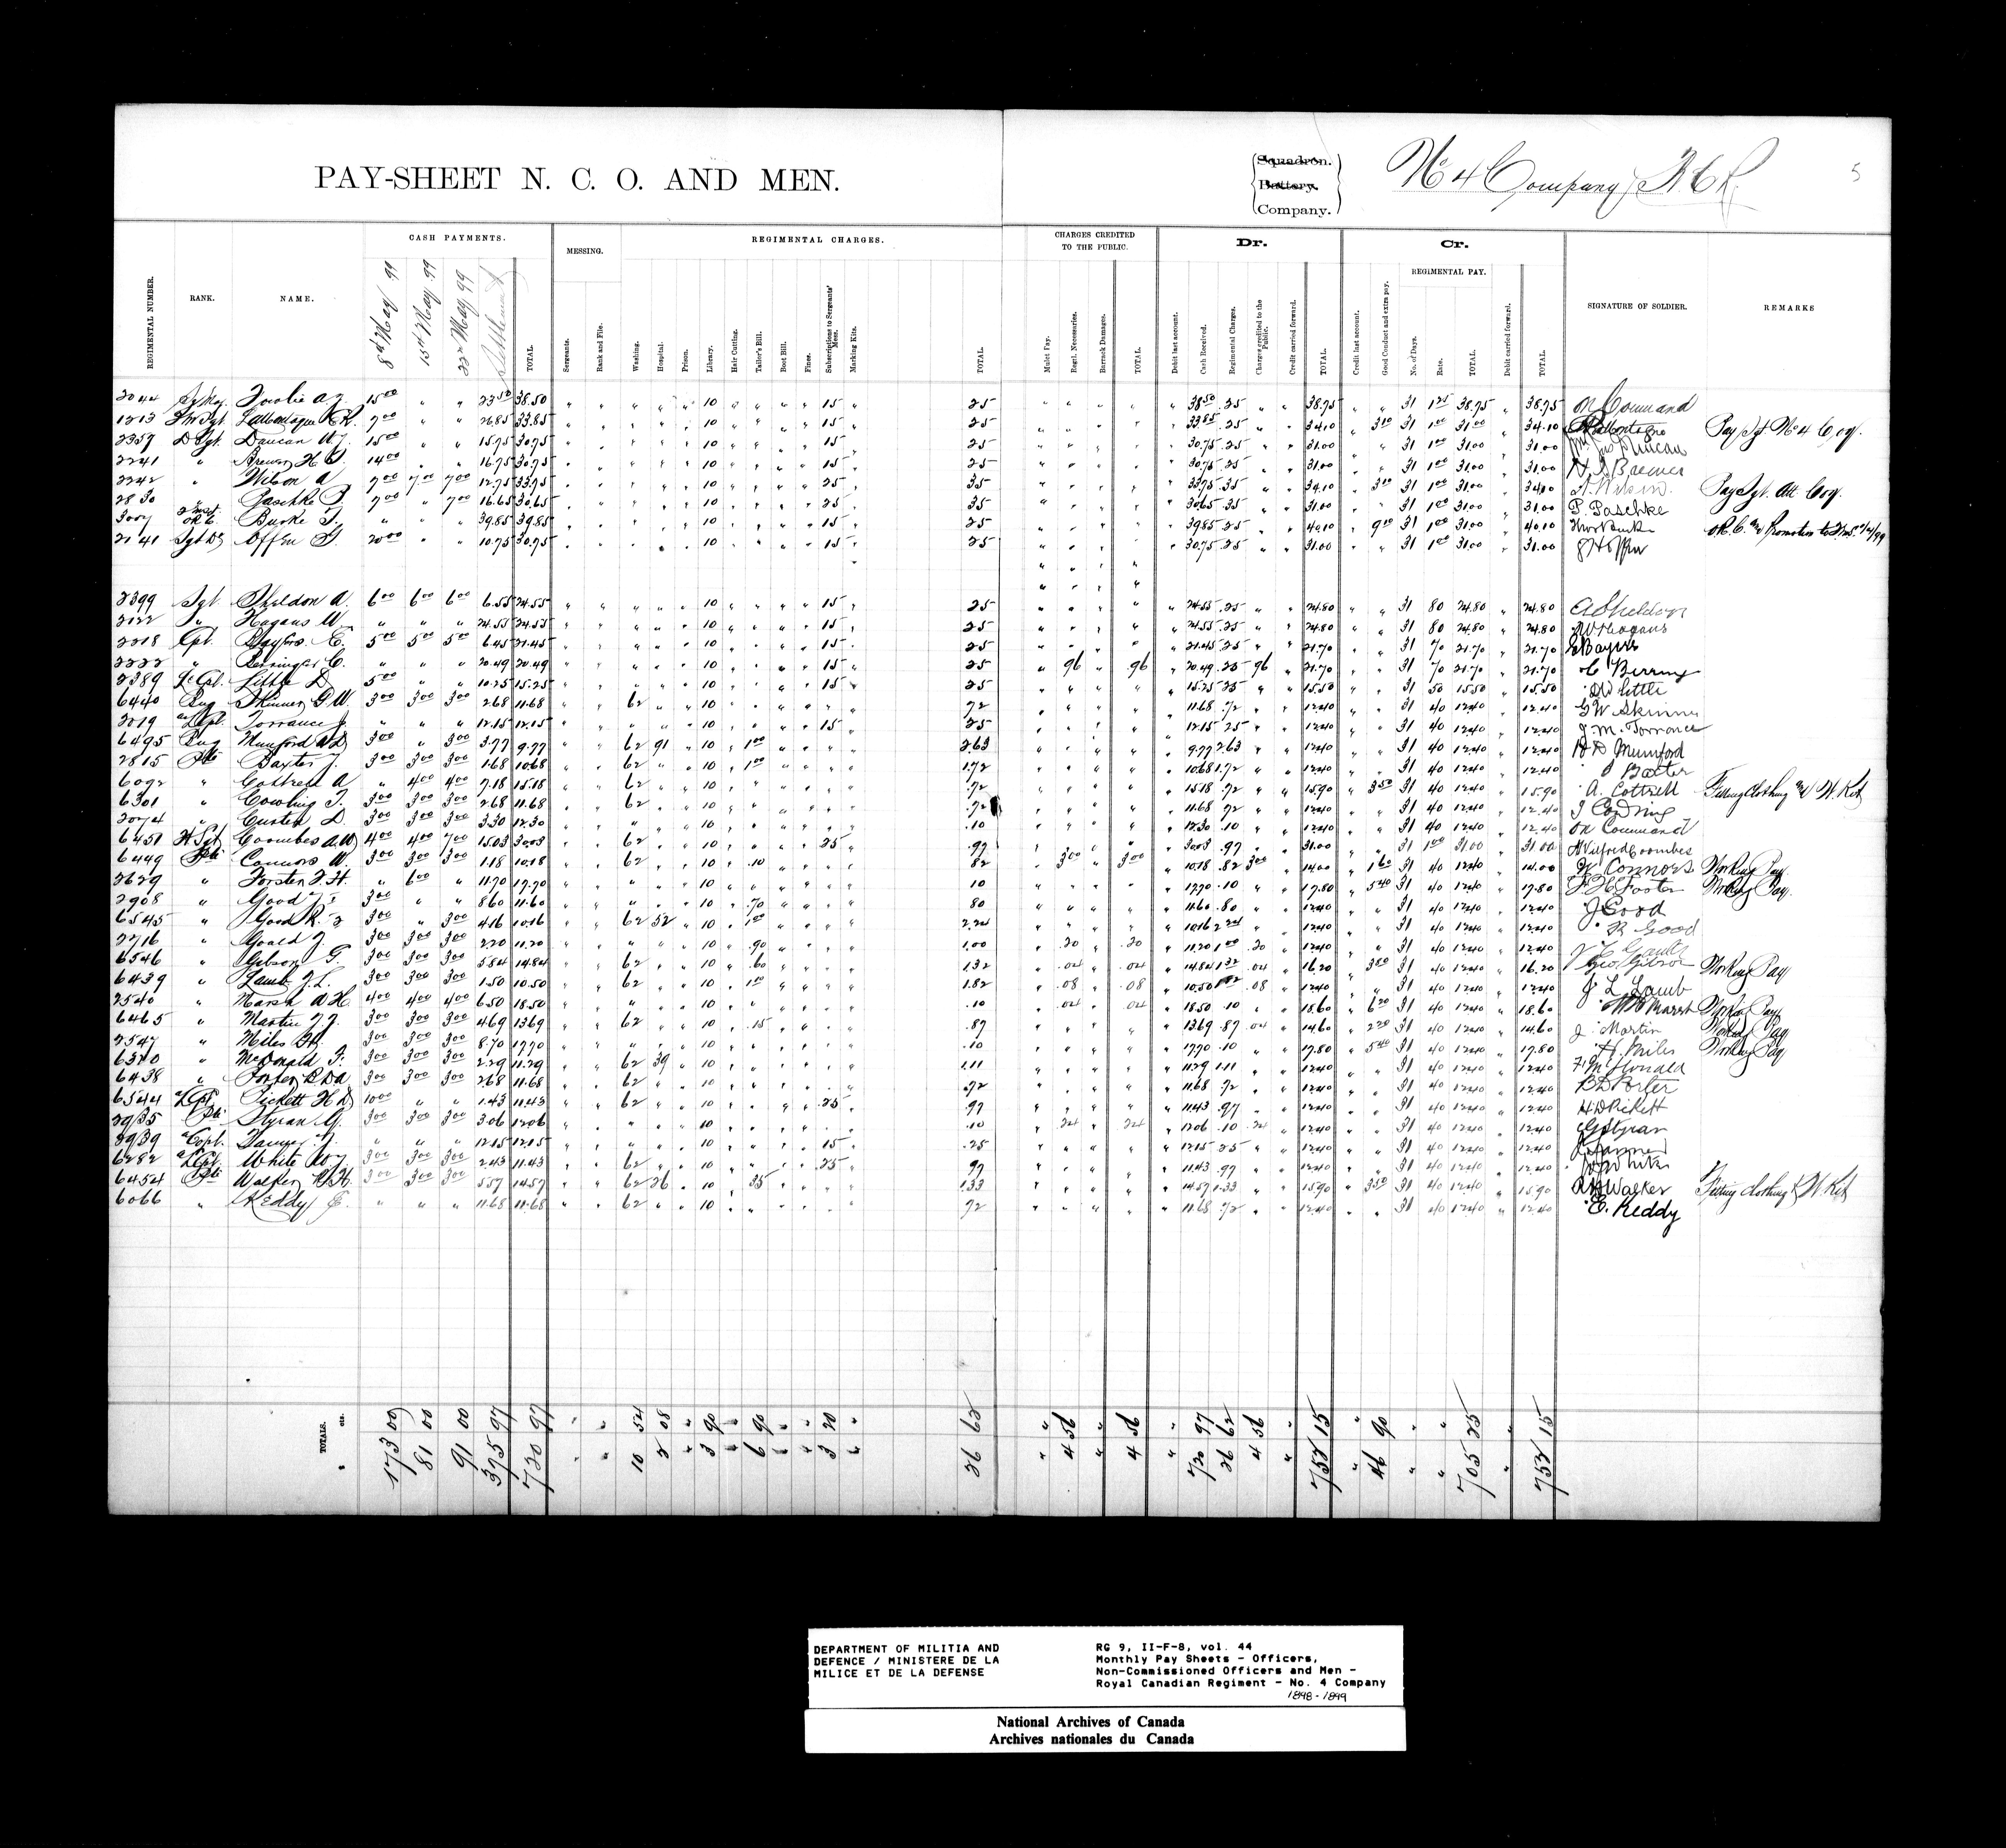 PAY-SHEET N. C. O. AND MEN.
Squadron.
Battery.
Company.
No 4 Company R C R
CASH PAYMENTS.
MESSING.
REGIMENTAL CHARGES.
CHARGES CREDITED TO THE PUBLIC.
Dr.
Cr.
REGIMENTAL PAY.
REGIMENTAL NUMBER.
RANK.
NAME.
8th May .99
15th May .99
22nd May 99
Settlement
TOTAL.
Sergeants.
Rank and File.
Washing.
Hospital.
Prison.
Library.
Hair Cutting.
Tailor's Bill.
Boot Bill.
Fines.
Subscriptions to Sergeants' Mess.
Marking Kits.
TOTAL.
Mulct Pay.
Regtl. Necessaries.
Barrack Damages.
TOTAL.
Debit last account.
Cash Received.
Regimental Charges.
Charges credited to the Public.
Credit carried forward.
TOTAL.
Credit last account.
Good Conduct and extra pay.
No. of Days.
Rate.
TOTAL.
Debit carried forward.
TOTAL.
SIGNATURE OF SOLDIER.
REMARKS
15 00 23 50 38.50 10 15 25 38 50 .25 38.75 31 1 25 38.75 38.75 On Command
7 00 26.85 33.85 10 15 25 33.85 .25 34.10 3 10 31 1 00 31.00 34.10 Pay Sgt No 4 Coy.
2357 Duncan W J. 15 00 15.75 30.75 10 15 25 30.75 .25 31.00 31 1 00 31.00 31.00 Duncan
2241 " 14 00 16.75 30.75 10 15 25 30.75 .25 31.00 31 1 00 31.00 31.00 H J Brewer
2242 " Wilson A 7 00 7 00 7 00 12.75 33.75 10 25 35 33.75 .35 34.10 3 10 31 1 00 31.00 34.10 A. Wilson. Pay Sgt. Att Coy.
2830 " Paschke P. 7 00 " 7 00 16.65 30.65 10 25 35 30.65 .35 31.00 31 1 00 31.00 31.00 P. Paschke
3007 O.R.C. Burke T. 39.85 39.85 10 15 25 39.85 .25 40.10 9 10 31 1 00 31.00 40.10
2141 Offen 20 00 10.75 30.75 10 15 25 30.75 .25 31.00 31 1 00 31.00 31.00
2399 Sgt. Sheldon A. 6 00 6 00 6 00 6.55 24.55 10 15 25 24.55 .25 24.80 31 80 24.80 24.80 A Sheldon
2122 " Hagans W 24.55 24.55 10 15 25 24.55 .25 24.80 31 80 24.80 24.80 W Hagans
2218 Cpl. Bayers E. 5 00 5 00 5 00 6.45 21.45 10 15 25 21.45 .25 21.70 31 70 21.70 21.70 E Bayers
2222 " 20.49 20.49 10 15 25 96 96 20.49 .25 96 21.70 31 70 21.70 21.70
2389 L Cpl. Little D 5 00 10.25 15.25 10 15 25 15.25 .25 15.50 31 50 15.50 15.50 D W Little
6440 Bug Skinner G W. 3 00 3 00 3 00 2.68 11.68 62 10 72 11.68 .72 12.40 31 40 12.40 12.40 G W Skinner
3019 Torrance J. 12.15 12.15 10 15 25 12.15 25 12.40 31 40 12.40 12.40 J. M. Torrance
6495 Bug Mumford W D 3 00 " 3 00 3.77 9.77 62 91 10 1 00 2.63 9.77 2.63 12.40 31 40 12.40 12.40 W D Mumford
2815 Pte Baxter J. 3 00 3 00 3 00 1.68 10.68 62 10 1 00 1.72 10.68 1.72 12.40 31 40 12.40 12.40 J Baxter
6092 " Cottrell A " 4 00 4 00 7.18 15.18 62 10 .72 15.18 .72 15.90 3 50 31 40 12.40 15.90 A. Cottrell Fitting Clothing & W. Kit
6301 " Cowling T. 3 00 3 00 3 00 2.68 11.68 62 10 .72 11.68 72 12.40 31 40 12.40 12.40 T Cowling
2074 " Custen D. 3 00 3 00 3 00 3.30 12.30 10 .10 12.30 .10 12.40 31 40 12.40 12.40 On Command
6451 Coombes A W 4 00 4 00 7 00 15.03 30.03 62 10 25 .97 30.03 .97 31.00 31 1 00 31.00 31.00 A Wilfred Coombes
6449 Pte Connors W. 3 00 3 00 3 00 1.18 10.18 62 10 .10 82 3 00 3 00 10.18 .82 3 00 14.00 1 60 31 40 12.40 14.00 W Connors Working Pay
2629 " Forster F. H. " 6 00 " 11.70 17.70 10 10 17.70 .10 17.80 5 40 31 40 12.40 17.80 F H Foster Working Pay.
2908 " Good J. 3 00 " " 8.60 11.60 10 .70 80 11.60 .80 12.40 31 40 12.40 12.40 J Good
6545 " Good R. 3 00 " 3 00 4.16 10.16 62 52 10 1 00 2.24 10.16 2.24 12.40 31 40 12.40 12.40 R Good
2716 " 3 00 3 00 3 00 2.20 11.20 10 .90 1.00 .20 .20 11.20 1 00 .20 12.40 31 40 12.40 12.40
6546 " Gibson G. 3 00 3 00 3 00 5.84 14.84 62 10 .60 1.32 .04 .04 14.84 1.32 .04 16.20 3 80 31 40 12.40 16.20 Geo Gibson Working Pay
6439 " Lamb J. L. 3 00 3 00 3 00 1.50 10.50 62 10 1 00 1.82 .08 .08 10.50 1.82 .08 12.40 31 40 12.40 12.40 J. L Lamb
2540 " Marsh W H. 4 00 4 00 4 00 6.50 18.50 10 .10 18.50 .10 18.60 6 20 31 40 12.40 18.60 W H Marsh Working Pay
6465 " Martin J. J. 3 00 3 00 3 00 4.69 13.69 62 10 .15 .87 .04 .04 13.69 .87 .04 14.60 2 20 31 40 12.40 14.60 J. Martin Working Pay
2547 " Miles H. 3 00 3 00 3 00 8.70 17.70 10 .10 17.70 .10 17.80 5 40 31 40 12.40 17.80 H. Miles Working Pay
6320 " McDonald F. 3 00 3 00 3 00 2.29 11.29 62 39 10 1.11 11.29 1.11 12.40 31 40 12.40 12.40
6438 " Porter B D A 3 00 3 00 3 00 2.68 11.68 62 10 .72 11.68 .72 12.40 31 40 12.40 12.40 B D Porter
6544 Pickett H D 10 00 " " 1.43 11.43 62 10 .25 .97 11.43 .97 12.40 31 40 12.40 12.40 H D Pickett
Pte Styran G. 3 00 3 00 3 00 3.06 12.06 10 .10 24 24 12.06 .10 .24 12.40 31 40 12.40 12.40 G Styran
12.15 12.15 10 15 .25 12.15 .25 12.40 31 40 12.40 12.40
6282 White W J. 3 00 3 00 3 00 2.43 11.43 62 10 .25 97 11.43 .97 12.40 31 40 12.40 12.40
6454 Pte Walker R H. 3 00 3 00 3 00 5.57 14.57 62 26 10 35 1.33 14.57 1.33 15.90 3 50 31 40 12.40 15.90 R H Walker Fitting Clothing & W. Kit
6066 " Keddy E. 11.68 11.68 62 10 72 11.68 .72 12.40 31 40 12.40 12.40 E. Keddy
TOTALS. $ cts. 173 00 81 00 91 00 375 97 720 97 10 54 2 08 3 90 6 90 3 20 26 62 4 56 4 56 720 97 26 62 4 56 752 15 46 90 705 25 752 15
DEPARTMENT OF MILITIA AND
DEFENCE / MINISTERE DE LA
MILICE ET DE LA DEFENSE
RG 9, II-F-8, vol. 44
Monthly Pay Sheets - Officers,
Non-Commissioned Officers and Men -
Royal Canadian Regiment - No. 4 Company
1898-1899
National Archives of Canada
Archives nationales du Canada